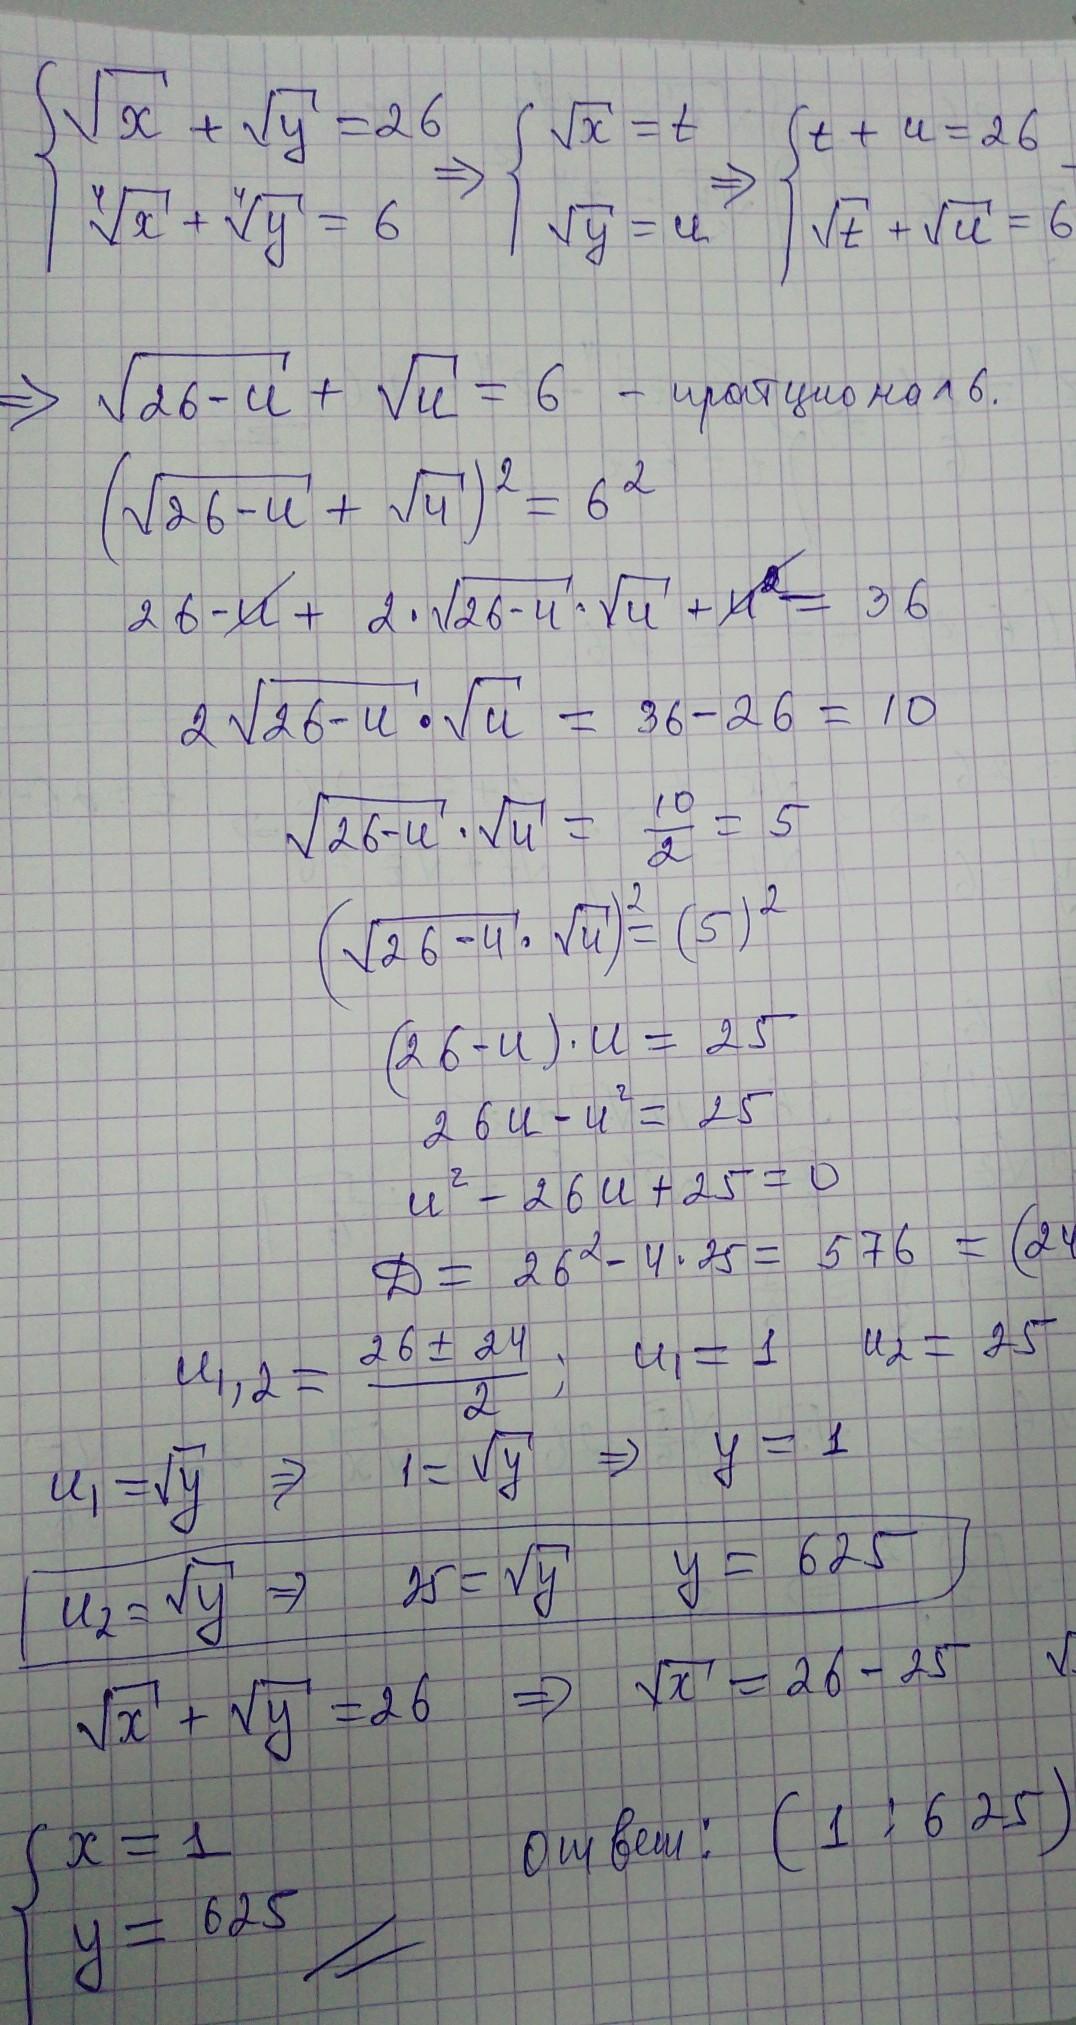 { √x + √y = 26 ⇒ { √x = t ⇒ { t + u = 26
⁴√x + ⁴√y = 6 √y = u √t + √u = 6
⇒ √(26-u) + √u = 6 - иратционалб.
(√(26-u) + √u)² = 6²
26-u + 2·√(26-u)·√u + u = 36
2√(26-u)·√u = 36-26 = 10
√(26-u)·√u = 10/2 = 5
(√(26-u)·√u)² = (5)²
(26-u)·u = 25
26u - u² = 25
u² - 26u + 25 = 0
D = 26² - 4·25 = 576 = (24
u1,2 = (26 ± 24)/2 ; u1 = 1 u2 = 25
u1 = √y ⇒ 1 = √y ⇒ y = 1
u2 = √y ⇒ 25 = √y y = 625
√x + √y = 26 ⇒ √x = 26 - 25 √
{ x = 1 ответ: (1 ; 625)
y = 625